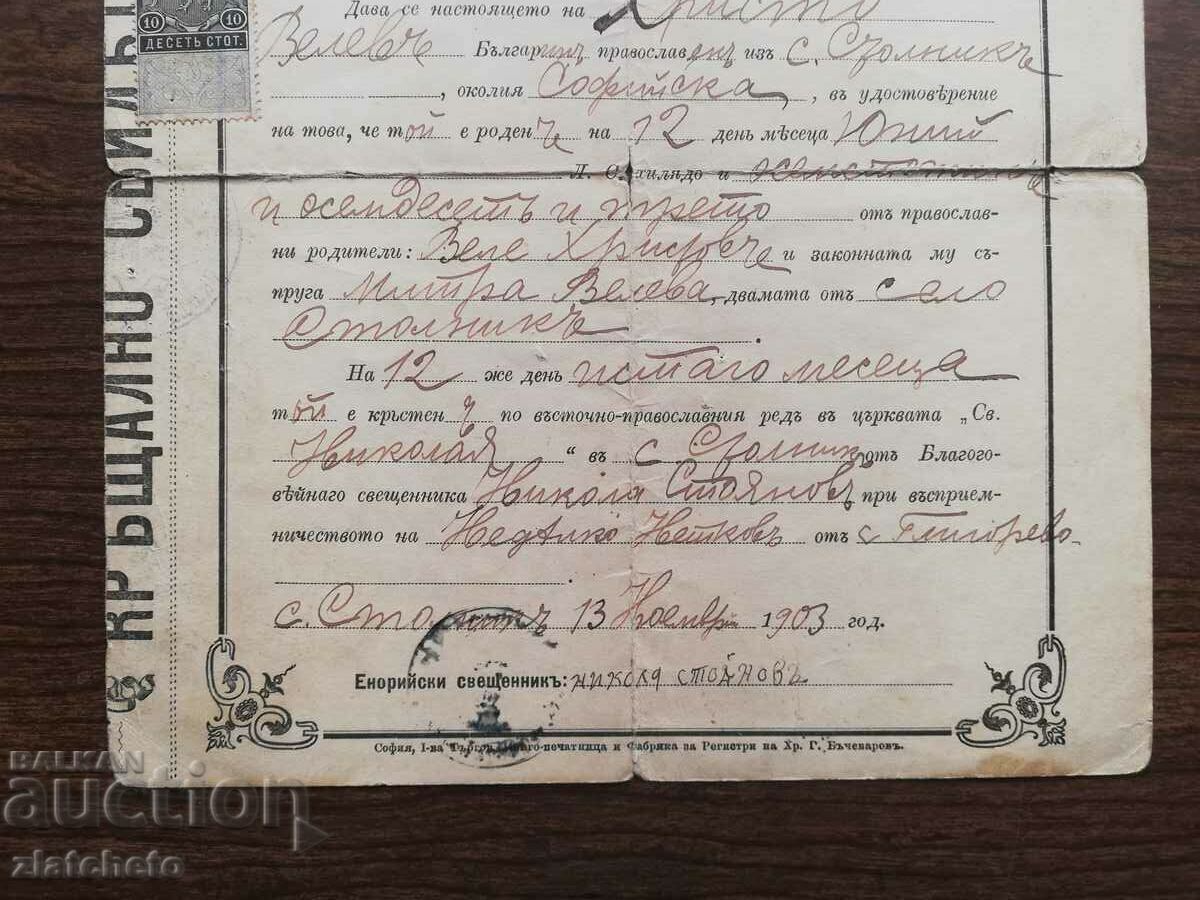 10 10
ДЕСЕТЬ СТОТ.
КРЪЩАЛНО
Дава се настоящето на Христо
Велевъ Българинъ православенъ изъ с. Столникъ
, околия Софийска, въ удостовѣрение
на това, че той е роденъ на 12 день мѣсеца Юний
Л. О. хилядо и
и осемдесеть и трето отъ православ-
ни родители: Веле Христовъ и законната му съ-
пруга Митра Велева, двамата отъ село
Столникъ.
На 12 же день истаго месеца
той е кръстенъ по въсточно-православния редъ въ църквата „Св.
Николая“ въ с Столник отъ Благого-
вѣйнаго свещенника Никола Стояновъ при възприем-
ничеството на Недѣлко Нетковъ отъ с Глигорево
с. Столникъ 13 Ноемврий 1903 год.
Енорийски свещенникъ: никола стойновъ
София, I-ва Търгов. Книго-печатница и Фабрика за Регистри на Хр. Г. Бъчеваровъ.
BALKAN
auction
zlatcheto